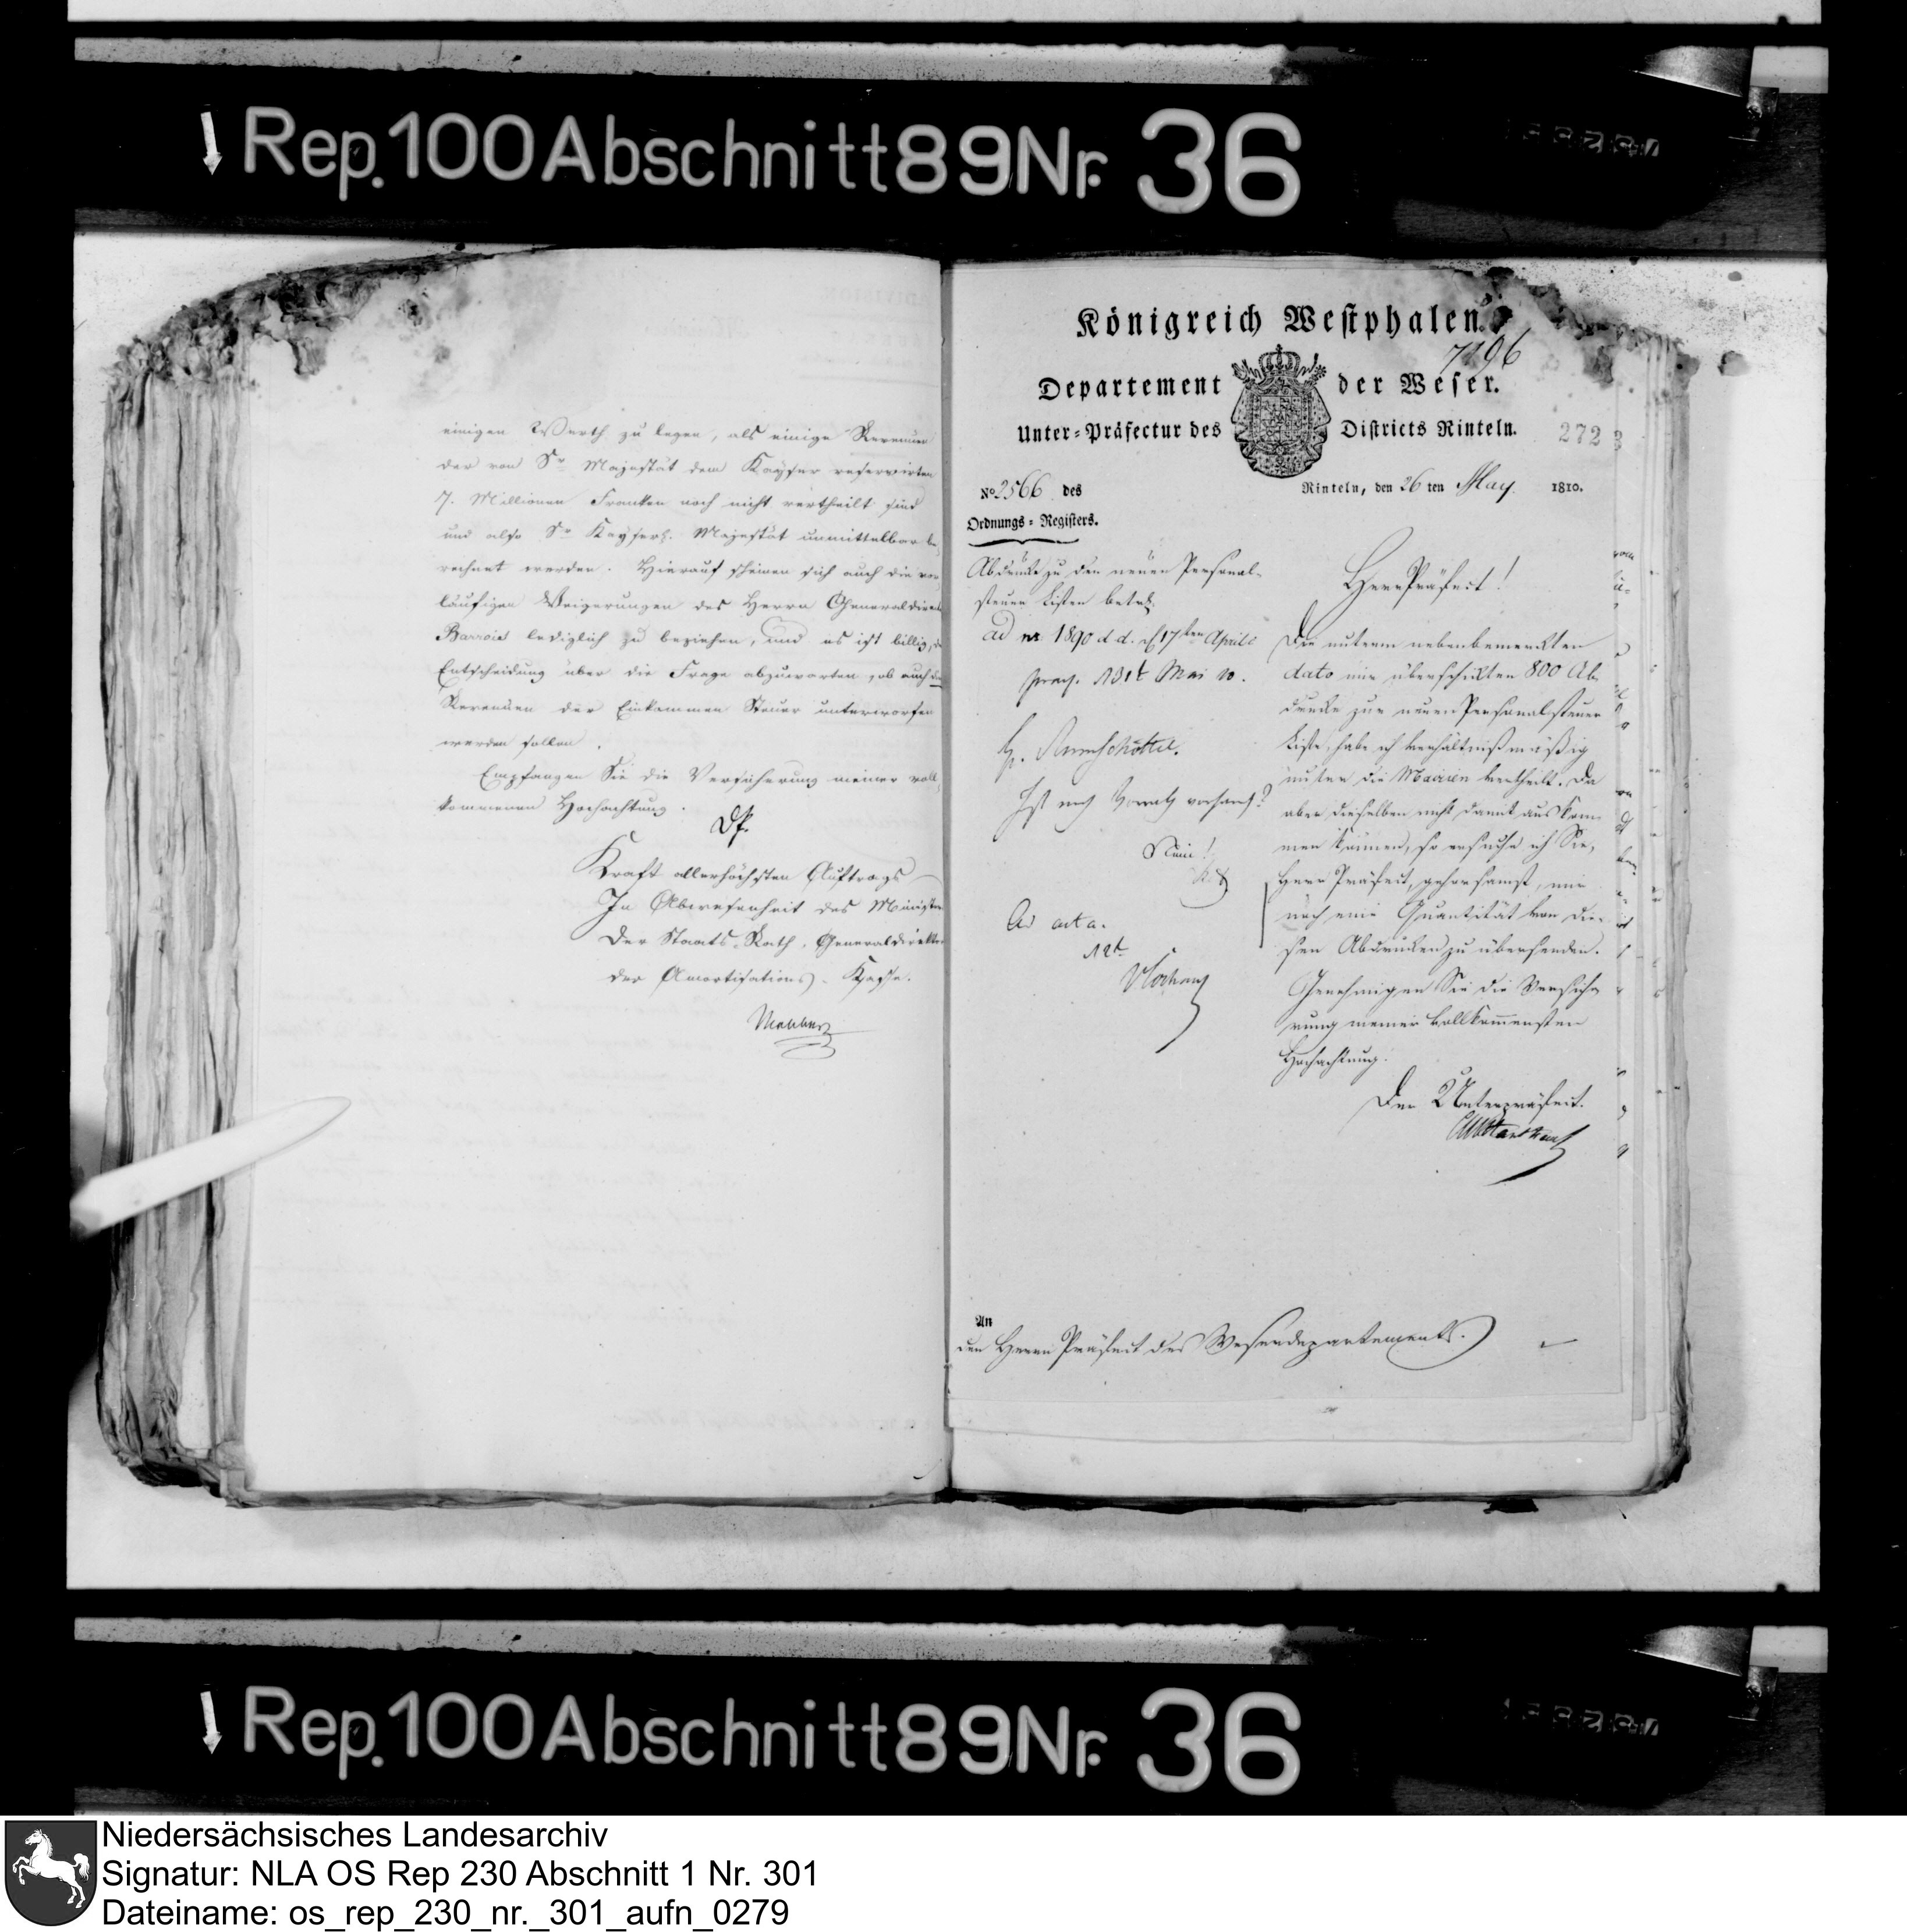 Rep. 100 Abschnitt 89 Nr. 36
einigen Werth zu legen, als einige Revenuen
der von Sr Majestät dem Kayser reservirten
7. Millionen Franken noch nicht vertheilt sind
und also Sr Kayserl. Majestät unmittelbar be
rechnet werden. Hierauf scheinen sich auch die vor
läufigen Weigerungen des Herrn Generaldirect
Barrois lediglich zu beziehen, und es ist billig, die
Entscheidung über die Frage abzuwarten, ob auch die
Revenuen der Einkommen Steuer unterworfen
werden sollen.
Empfangen Sie die Versicherung meiner voll
kommenen Hochachtung.
Kraft allerhöchsten Auftrags
In Abwesenheit des Minister
Der Staats-Rath, Generaldirektor
der Amortisations-Kasse.
Malchus
Königreich Westphalen.
7196
Departement der Weser.
Unter-Präfectur des Districts Rinteln.
272
No 2566 des
Ordnungs-Registers.
Rinteln, den 26 ten May. 1810.
Abdrücke zu den neuen Personal-
steuer Listen betr.
ad nr 1890 d. d. 17ten Aprill
praes. 31t Mai 10.
Ist noch Vorrath vorhand?
Nein!
Ad acta.
Herr Präfect!
Die unterm nebenbemerkten
dato mir überschickten 800 Ab
drücke zur neuen Personalsteuer
Liste, habe ich verhältnißmäßig
unter die Mairien vertheilt. Da
aber dieselben nicht damit auskom
men können, so ersuche ich Sie,
Herr Präfect, gehorsamst, mir
noch eine Quantität von die-
sen Abdrücken zu übersenden.
Genehmigen Sie die Versiche
rung meiner vollkommensten
Hochachtung.
Der Unterpräfect.
An
den Herrn Präfect des Weserdepartements.
Rep. 100 Abschnitt 89 Nr. 36
Niedersächsisches Landesarchiv
Signatur: NLA OS Rep 230 Abschnitt 1 Nr. 301
Dateiname: os_rep_230_nr._301_aufn_0279